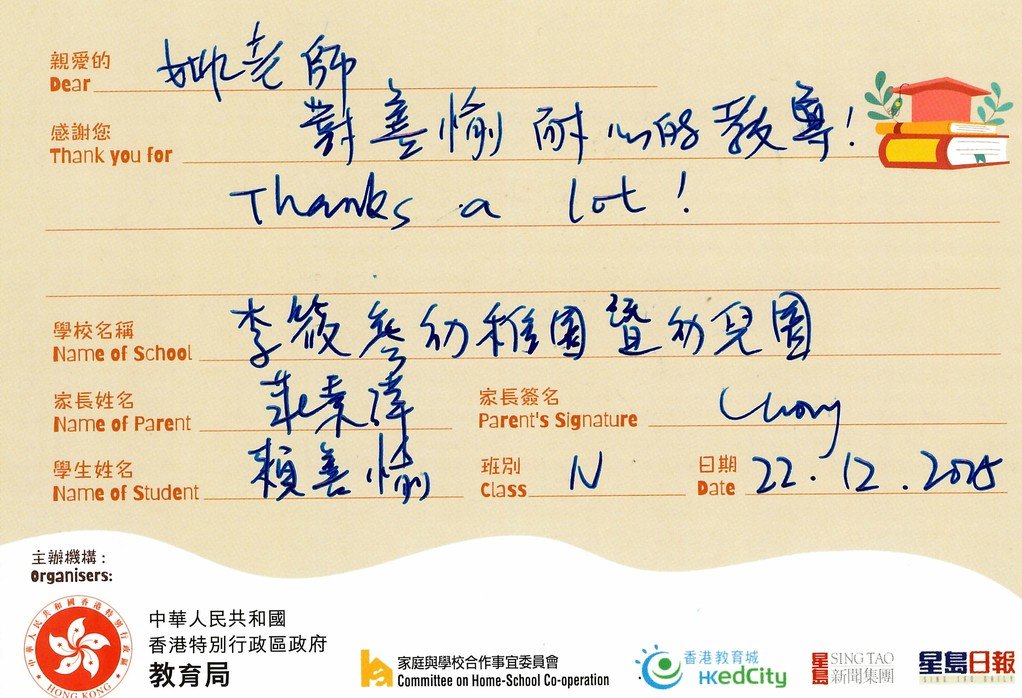 親愛的
Dear 姚老師
感謝您 對善愉耐心的教導!
Thank you for
Thanks a lot!
學校名稱 李筱參幼稚園暨幼兒園
Name of School
家長姓名 莊秉偉 家長簽名
Name of Parent Parent's Signature Chong
學生姓名 賴善愉 班別 N 日期 22.12.2025
Name of Student Class Date
主辦機構:
Organisers:
中華人民共和國香港特別行政區
HONG KONG
中華人民共和國
香港特別行政區政府
教育局
家庭與學校合作事宜委員會
Committee on Home-School Co-operation
香港教育城
HKedCity
星島 SING TAO
新聞集團
星島日報
SING TAO DAILY